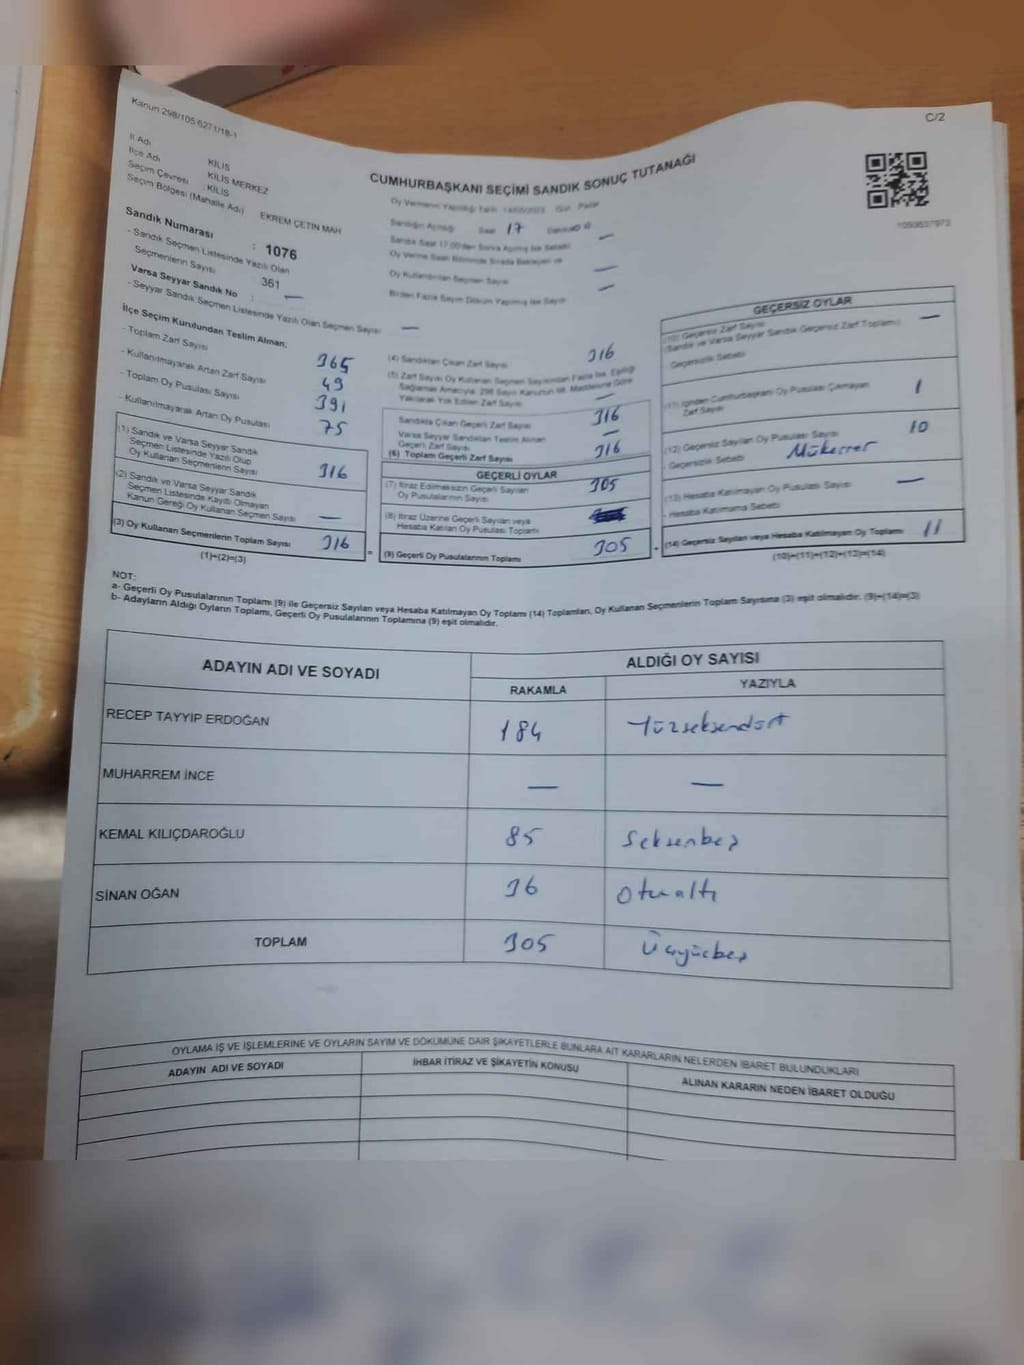 Kanun 298/105.6271/18-1
C/2
İl Adı KİLİS
İlçe Adı KİLİS MERKEZ
Seçim Çevresi : KİLİS
Seçim Bölgesi (Mahalle Adı) EKREM ÇETİN MAH
Sandık Numarası : 1076
- Sandık Seçmen Listesinde Yazılı Olan
Seçmenlerin Sayısı 361
Varsa Seyyar Sandık No : —
- Seyyar Sandık Seçmen Listesinde Yazılı Olan Seçmen Sayısı —
CUMHURBAŞKANI SEÇİMİ SANDIK SONUÇ TUTANAĞI
Oy Vermenin Yapıldığı Tarih 14/05/2023 Gün Pazar
Sandığın Açıldığı Saat 17
Sandık Saat 17:00'den Sonra Açılmış İse Sebebi —
Oy Kullandırılan Seçmen Sayısı —
Birden Fazla Sayım Döküm Yapılmış İse Sayısı —
1093637973
İlçe Seçim Kurulundan Teslim Alınan;
- Toplam Zarf Sayısı 365
- Kullanılmayarak Artan Zarf Sayısı 49
- Toplam Oy Pusulası Sayısı 391
- Kullanılmayarak Artan Oy Pusulası 75
(1) Sandık ve Varsa Seyyar Sandık
Seçmen Listesinde Yazılı Olup
Oy Kullanan Seçmenlerin Sayısı 316
(2) Sandık ve Varsa Seyyar Sandık
Seçmen Listesinde Kayıtlı Olmayan
Kanun Gereği Oy Kullanan Seçmen Sayısı —
(3) Oy Kullanan Seçmenlerin Toplam Sayısı 316
(1)+(2)=(3)
(4) Sandıktan Çıkan Zarf Sayısı 316
(5) Zarf Sayısı Oy Kullanan Seçmen Sayısından Fazla İse, Eşitliği
Sağlamak Amacıyla, 298 Sayılı Kanunun 98. Maddesine Göre
Yakılarak Yok Edilen Zarf Sayısı —
Sandıkta Çıkan Geçerli Zarf Sayısı 316
Varsa Seyyar Sandıktan Teslim Alınan
Geçerli Zarf Sayısı —
(6) Toplam Geçerli Zarf Sayısı 316
GEÇERLİ OYLAR
(7) İtiraz Edilmeksizin Geçerli Sayılan
Oy Pusulalarının Sayısı 305
(8) İtiraz Üzerine Geçerli Sayılan veya
Hesaba Katılan Oy Pusulası Toplamı
(9) Geçerli Oy Pusulalarının Toplamı 305
GEÇERSİZ OYLAR
(10) Geçersiz Zarf Sayısı —
(Sandık ve Varsa Seyyar Sandık Geçersiz Zarf Toplamı)
- Geçersizlik Sebebi
(11) İçinden Cumhurbaşkanı Oy Pusulası Çıkmayan
Zarf Sayısı 1
(12) Geçersiz Sayılan Oy Pusulası Sayısı 10
- Geçersizlik Sebebi Mükerrer
(13) Hesaba Katılmayan Oy Pusulası Sayısı —
- Hesaba Katılmama Sebebi
(14) Geçersiz Sayılan veya Hesaba Katılmayan Oy Toplamı 11
(10)+(11)+(12)+(13)=(14)
NOT:
a- Geçerli Oy Pusulalarının Toplamı (9) ile Geçersiz Sayılan veya Hesaba Katılmayan Oy Toplamı (14) Toplamları, Oy Kullanan Seçmenlerin Toplam Sayısına (3) eşit olmalıdır. (9)+(14)=(3)
b- Adayların Aldığı Oyların Toplamı, Geçerli Oy Pusulalarının Toplamına (9) eşit olmalıdır.
ADAYIN ADI VE SOYADI ALDIĞI OY SAYISI
RAKAMLA YAZIYLA
RECEP TAYYİP ERDOĞAN 184 Yüzseksendört
MUHARREM İNCE — —
KEMAL KILIÇDAROĞLU 85 Seksenbeş
SİNAN OĞAN 36 Otuzaltı
TOPLAM 305 Üçyüzbeş
OYLAMA İŞ VE İŞLEMLERİNE VE OYLARIN SAYIM VE DÖKÜMÜNE DAİR ŞİKAYETLERLE BUNLARA AİT KARARLARIN NELERDEN İBARET BULUNDUKLARI
ADAYIN ADI VE SOYADI İHBAR İTİRAZ VE ŞİKAYETİN KONUSU ALINAN KARARIN NEDEN İBARET OLDUĞU